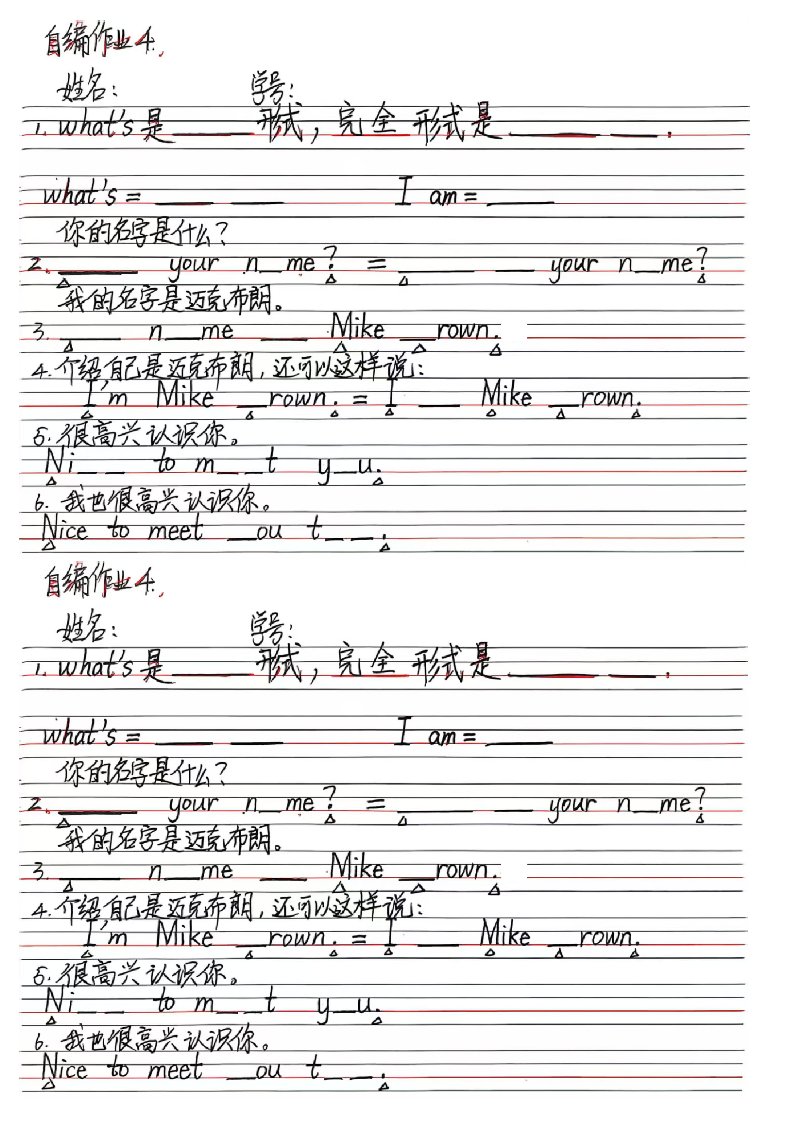 自编作业4.
姓名： 学号：
1. what's 是 ______ 形式，完全 形式是 ______ ____.
what's = ____ ____ I am = ____
你的名字是什么？
2. ______ your n__me? = ______ __ your n__me?
我的名字是迈克布朗。
3. ____ n__me ___ Mike __rown.
4. 介绍自己是迈克布朗，还可以这样说：
I'm Mike __rown. = I ___ Mike __rown.
5. 很高兴认识你。
Ni_ _ to m_ _t y_u.
6. 我也很高兴认识你。
Nice to meet __ou t_ _.
自编作业4.
姓名： 学号：
1. what's 是 ______ 形式，完全 形式是 ______ ____.
what's = ____ ____ I am = ____
你的名字是什么？
2. ______ your n__me? = ______ __ your n__me?
我的名字是迈克布朗。
3. ____ n__me ___ Mike __rown.
4. 介绍自己是迈克布朗，还可以这样说：
I'm Mike __rown. = I ___ Mike __rown.
5. 很高兴认识你。
Ni_ _ to m_ _t y_u.
6. 我也很高兴认识你。
Nice to meet __ou t_ _.